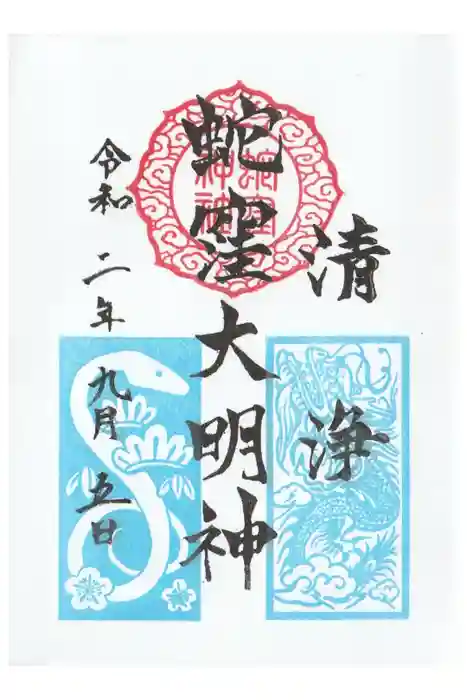 清浄
蛇窪大明神
令和二年九月五日